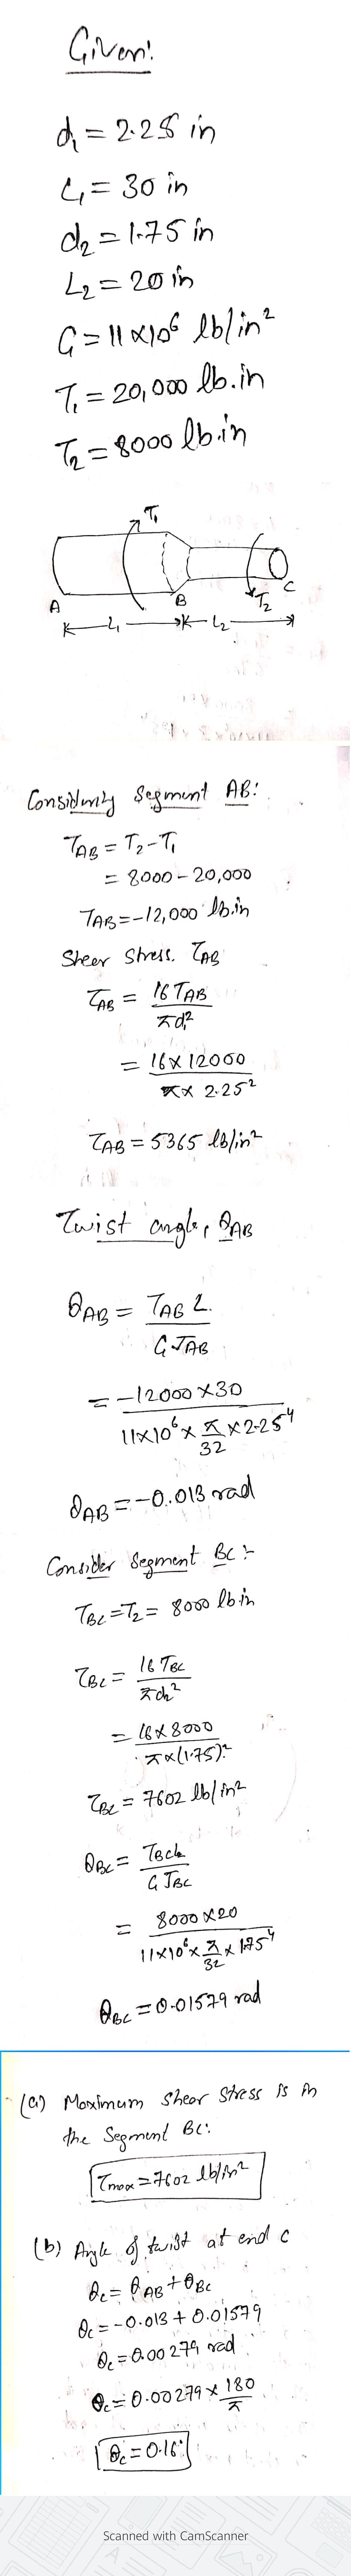 Given:
d₁ = 2.25 in
L₁ = 30 in
d₂ = 1.75 in
L₂ = 20 in
G = 11 x 10⁶ lb/in²
T₁ = 20,000 lb.in
T₂ = 8000 lb.in
T₁
A
B
C
T₂
L₁
L₂
Considering Segment AB:
T_AB = T₂ - T₁
= 8000 - 20,000
T_AB = -12,000 lb.in
Sheer Stress. τ_AB
τ_AB = 16 T_AB / πd₁²
= 16 x 12000 / π x 2.25²
τ_AB = 5365 lb/in²
Twist angle, θ_AB
θ_AB = T_AB L / G J_AB
= -12000 x 30 / 11x10⁶ x π/32 x 2.25⁴
θ_AB = -0.013 rad
Consider Segment BC :-
T_BC = T₂ = 8000 lb in
τ_BC = 16 T_BC / πd₂²
= 16 x 8000 / π x (1.75)²
τ_BC = 7602 lb/in²
θ_BC = T_BC L₂ / G J_BC
= 8000 x 20 / 11x10⁶ x π/32 x 1.75⁴
θ_BC = 0.01579 rad
(a) Maximum Shear Stress is in
the Segment BC:
τmax = 7602 lb/in²
(b) Angle of twist at end C
θc = θ_AB + θ_BC
θc = -0.013 + 0.01579
θc = 0.00279 rad
θc = 0.00279 x 180/π
θc = 0.16°
Scanned with CamScanner